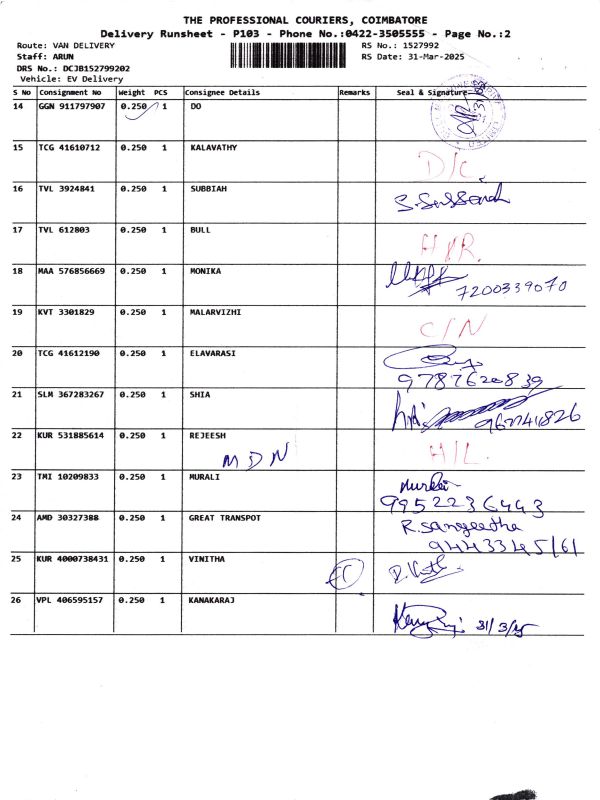 THE PROFESSIONAL COURIERS, COIMBATORE
Delivery Runsheet - P103 - Phone No.:0422-3505555 - Page No.:2
Route: VAN DELIVERY RS No.: 1527992
Staff: ARUN RS Date: 31-Mar-2025
DRS No.: DCJB152799202
Vehicle: EV Delivery
S No Consignment No Weight PCS Consignee Details Remarks Seal & Signature
14 GGN 911797907 0.250 1 DO
15 TCG 41610712 0.250 1 KALAVATHY
D/C.
16 TVL 3924841 0.250 1 SUBBIAH
17 TVL 612803 0.250 1 BULL
18 MAA 576856669 0.250 1 MONIKA
7200339070
19 KVT 3301829 0.250 1 MALARVIZHI
C/N
20 TCG 41612190 0.250 1 ELAVARASI
9787620839
21 SLM 367283267 0.250 1 SHIA
22 KUR 531885614 0.250 1 REJEESH
MDN H/L.
23 TMI 10209833 0.250 1 MURALI
Murali
9952236443
24 AMD 30327388 0.250 1 GREAT TRANSPOT
R.sangeetha
9443345161
25 KUR 4000738431 0.250 1 VINITHA
26 VPL 406595157 0.250 1 KANAKARAJ
31/3/25